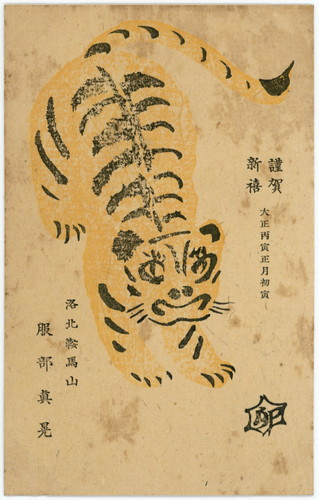 謹賀
新禧
大正丙寅正月初寅
洛北鞍馬山
服部眞晃